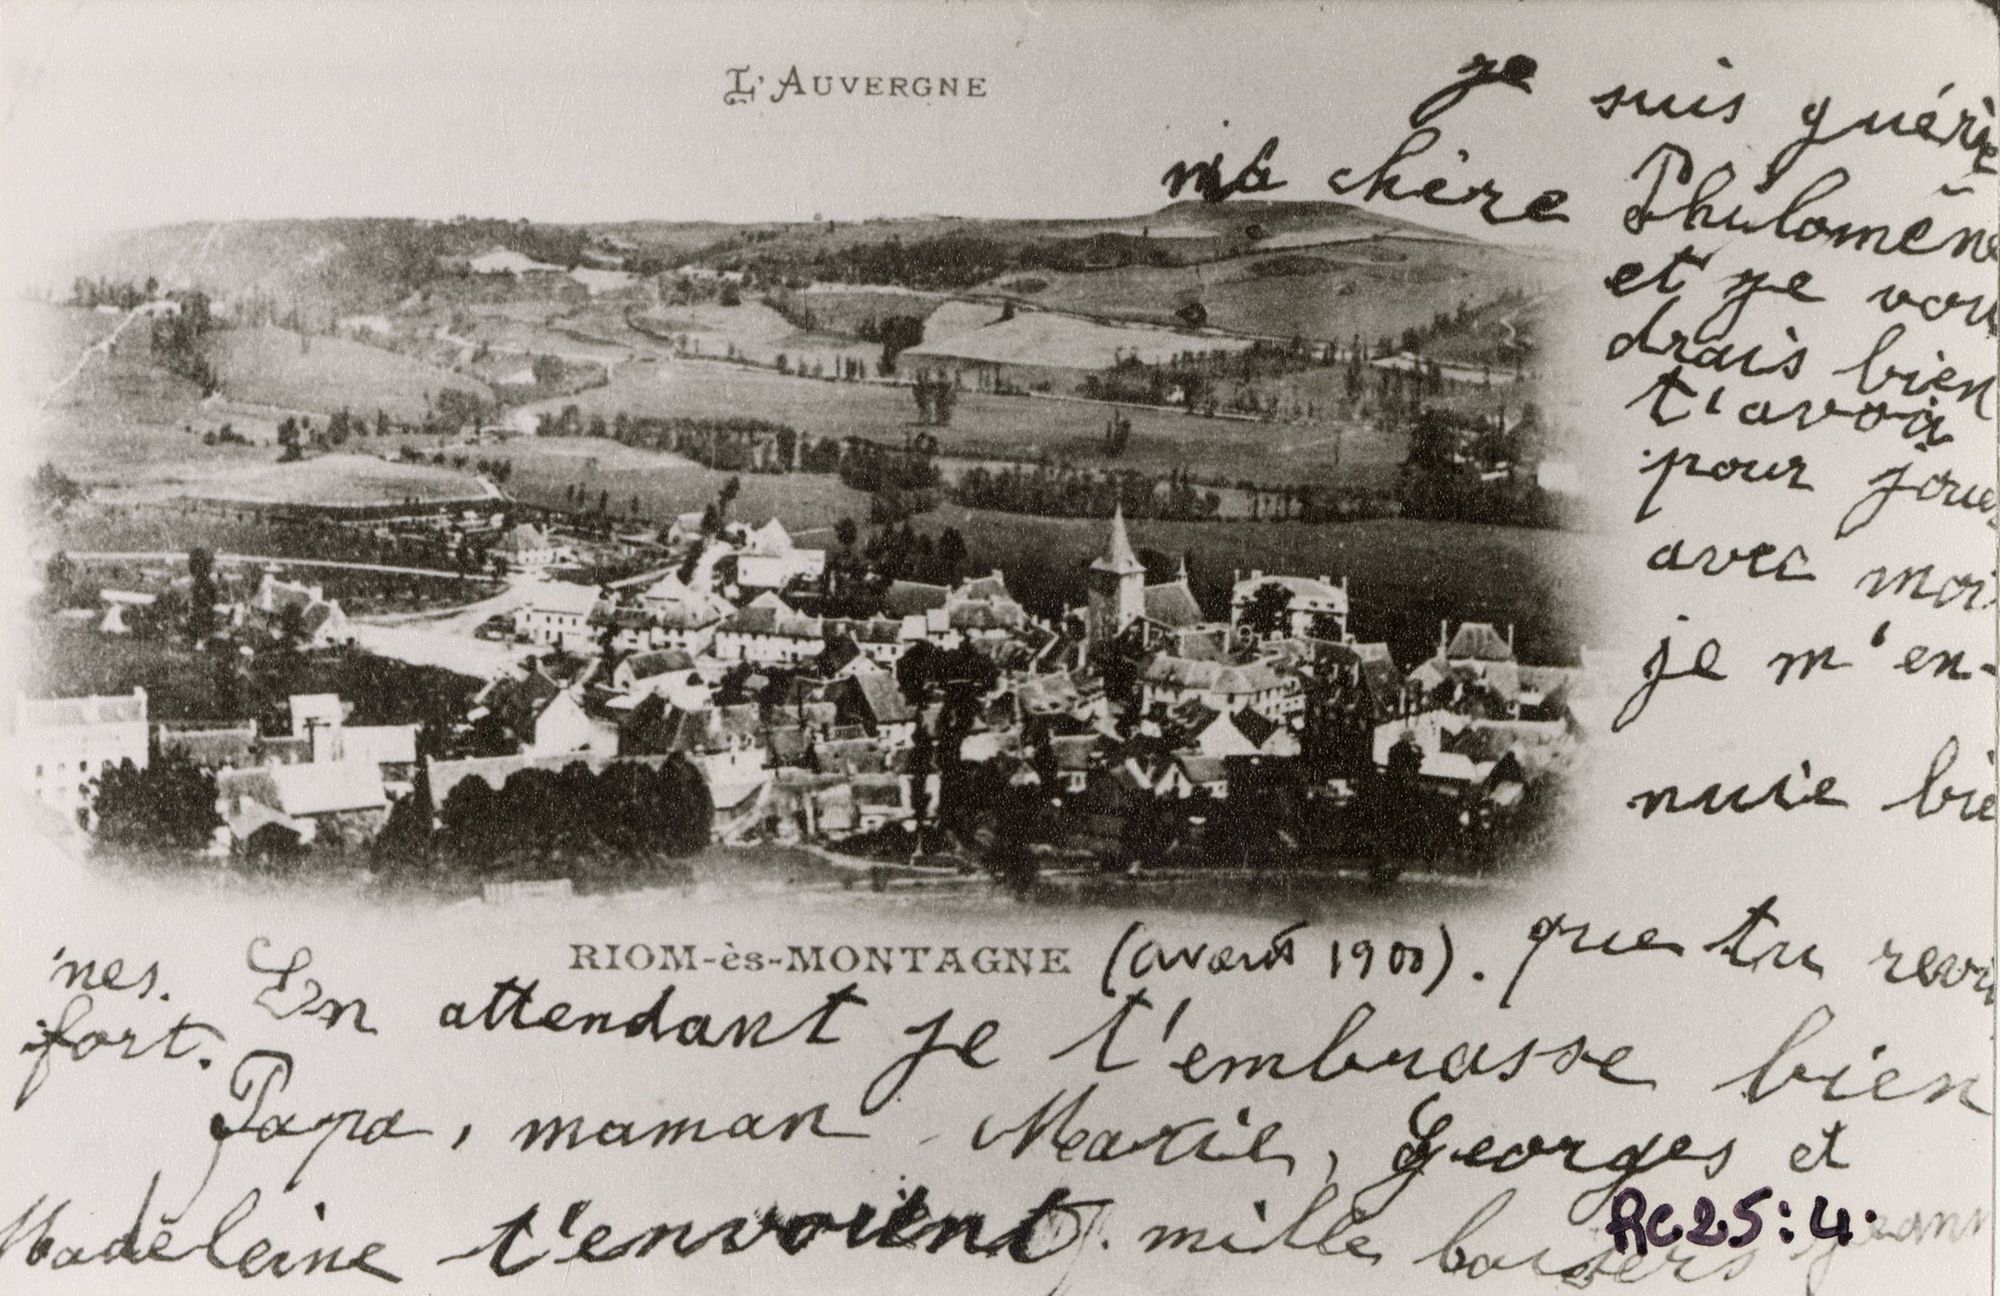 L'AUVERGNE
je suis guérie
ma chère Philomène
et je vou
drais bien
t'avoir
pour joue
avec moi
je m'en-
nuie bie
RIOM-ès-MONTAGNE (avant 1900). que tu revi
nes. En attendant je t'embrasse bien
fort.
Papa, maman - Marie, Georges et
Madeleine t'envoient mille baisers
RC25:4.